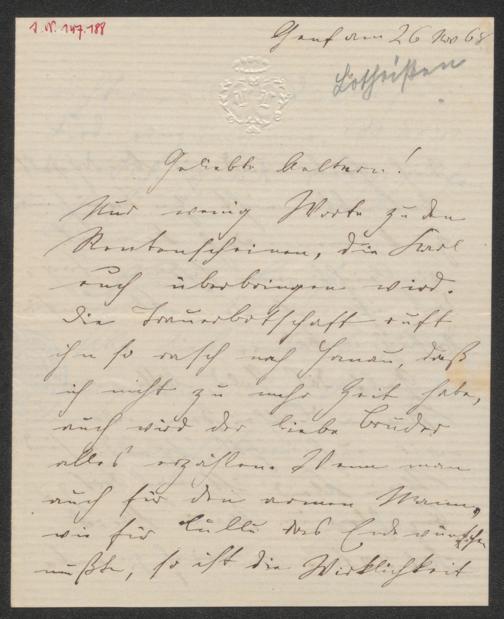 I. N. 147.188
Genf am 26 Nov 68
Geliebte Aeltern!
Nur wenig Worte zu den
Rentenscheinen, die Karl
euch überbringen wird.
Die Trauerbotschaft ruft
ihn so rasch nach Hanau, daß
ich nicht zu mehr Zeit habe,
auch wird der liebe Bruder
alles erzählen. Wenn man
auch für den armen Mann,
wie für Lulli das Ende wünschen
mußte, so ist die Wirklichkeit